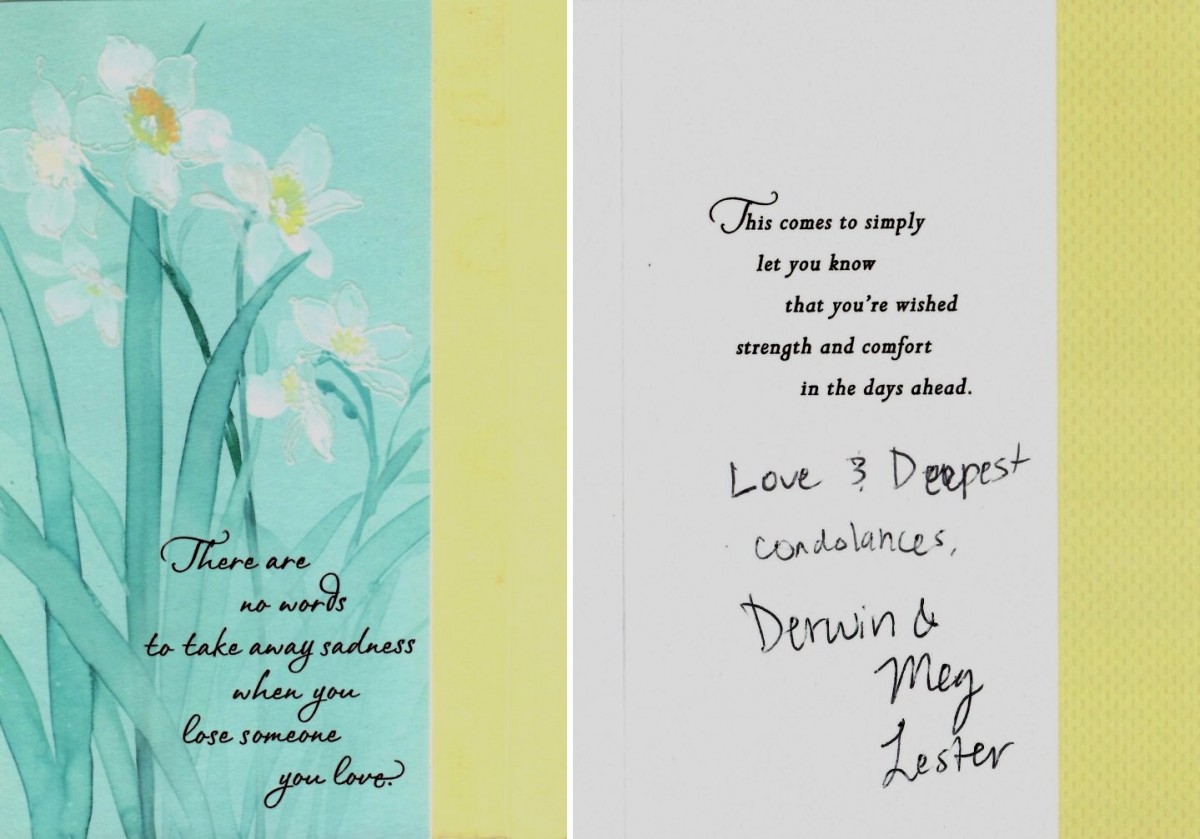 There are
no words
to take away sadness
when you
lose someone
you love.
This comes to simply
let you know
that you're wished
strength and comfort
in the days ahead.
Love & Deepest
condolances,
Derwin &
Meg
Lester